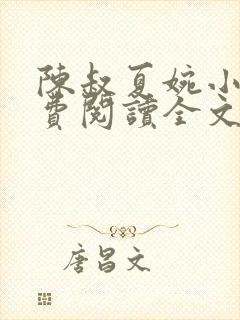 陳叔夏婉小
費閱讀全文
唐昌文